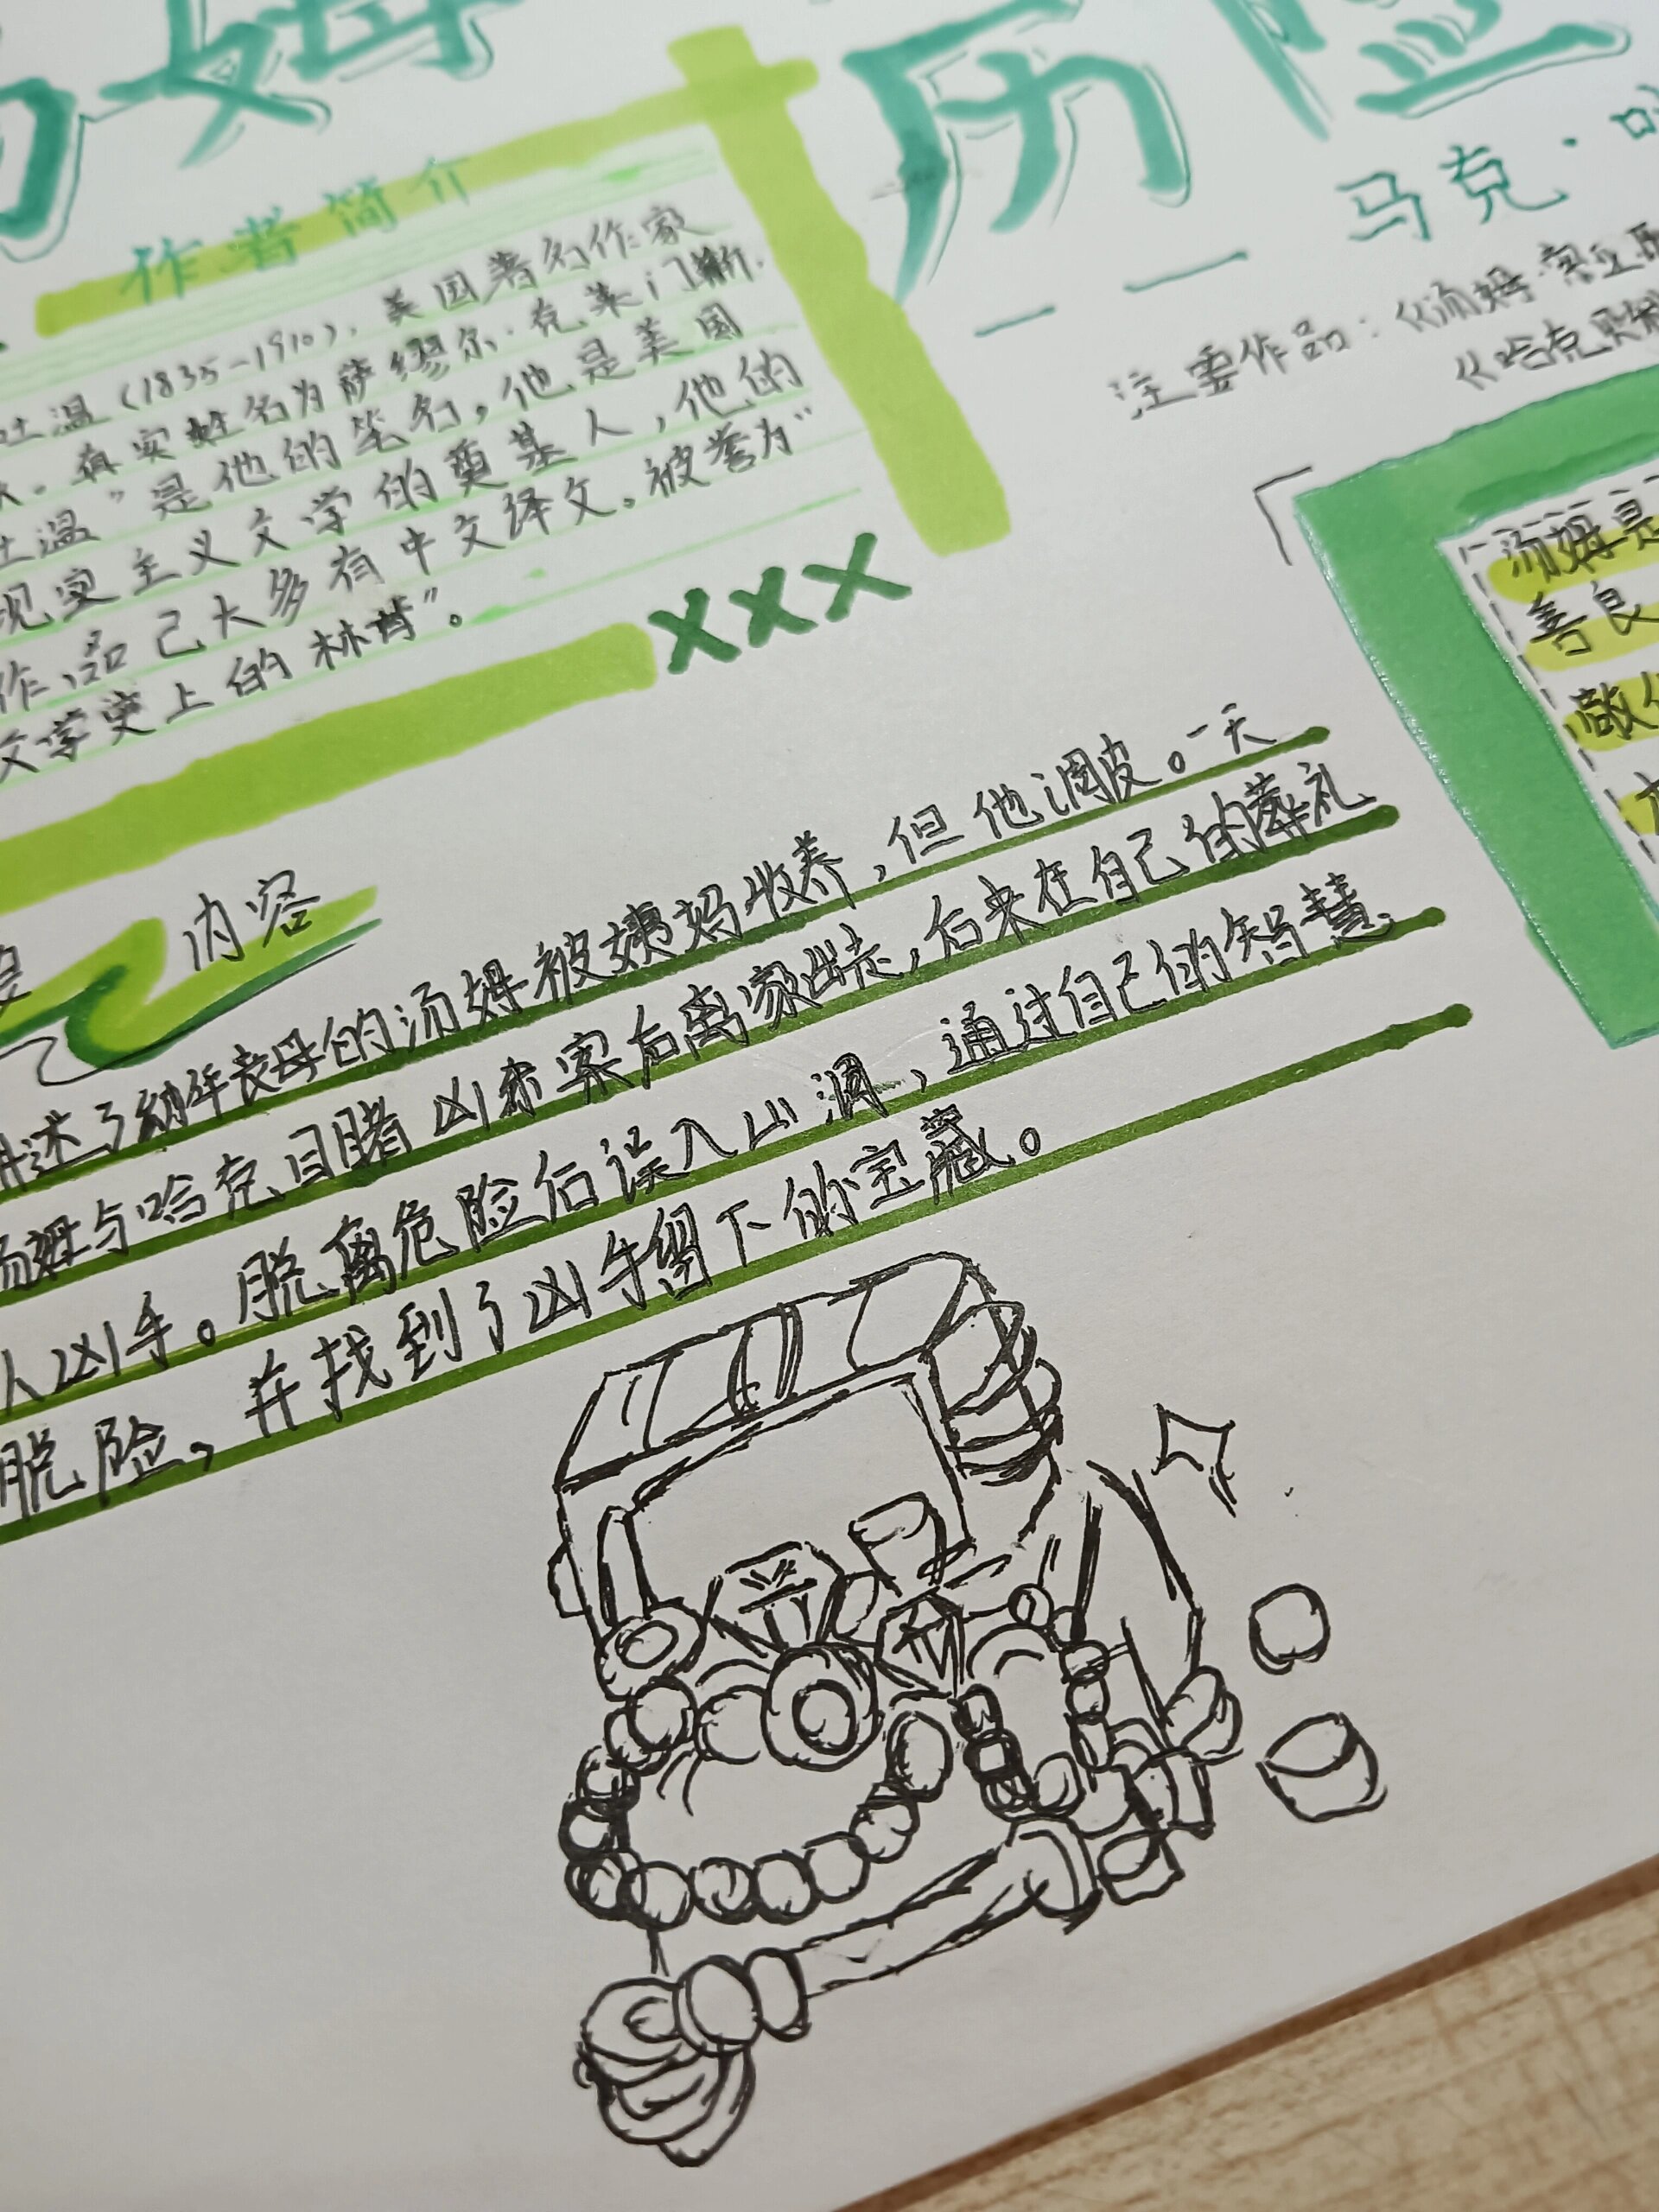 汤姆 历险
马克·吐
作者简介
吐温（1835-1910），美国著名作家
真实姓名为萨缪尔·克莱门斯.
吐温”是他的笔名，他是美国
现实主义文学的奠基人，他的
作品已大多有中文译文。被誉为“
文学史上的林肯”。
主要作品：《汤姆·索亚历
《哈克贝利
XXX
汤姆是
善良
敢
内容
讲述了幼年丧母的汤姆被姨妈收养，但他调皮。一天
汤姆与哈克目睹凶杀案后离家出走，后来在自己的葬礼
人凶手。脱离危险后误入山洞，通过自己的智慧
脱险，并找到了凶手留下的宝藏。